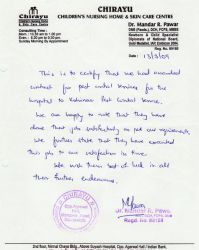 CHIRAYU
CHILDREN'S NURSING HOME & SKIN CARE CENTRE
Chirayu
Consulting Time
Mon - 10.30 am to 1.00 pm
& 6.30 pm to 9.30 pm
Sunday Morning By Appointment
Dr. Mandar R. Pawar
DNB (Paeds.), DCH, FCPS, MBBS
Newborn & Child Specialist
Diplomate of National Board,
Reg. No. 89168
Date : 13/3/09
This is to certify that we had awarded
contract for pest control services for the
hospital to Pest Control Service.
We are happy to note that they have
done their job satisfactorily as per our requirements.
We further state that they have executed
this job to our satisfaction in time.
We wish them best of luck in all
their further endeavours.
Dr. Mandar R. Pawar
Regd. No. 89168
2nd floor, Nirmal Chaya Bldg., Above Suyash Hospital, Opp. Agarwal Hall,